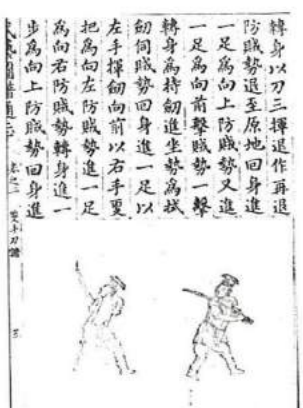 轉身以刀三揮退作再退
防賊勢退至原地回身進
一足爲向上防賊勢又進
一足爲向前擊賊勢一擊
轉身爲持劒進坐勢爲拭
劒伺賊勢回身進一足以
左手揮劒向前以右手更
把爲向左防賊勢進一足
爲向右防賊勢轉身進一
步爲向上防賊勢回身進
武藝圖譜通志
卷之二
雙手刀譜